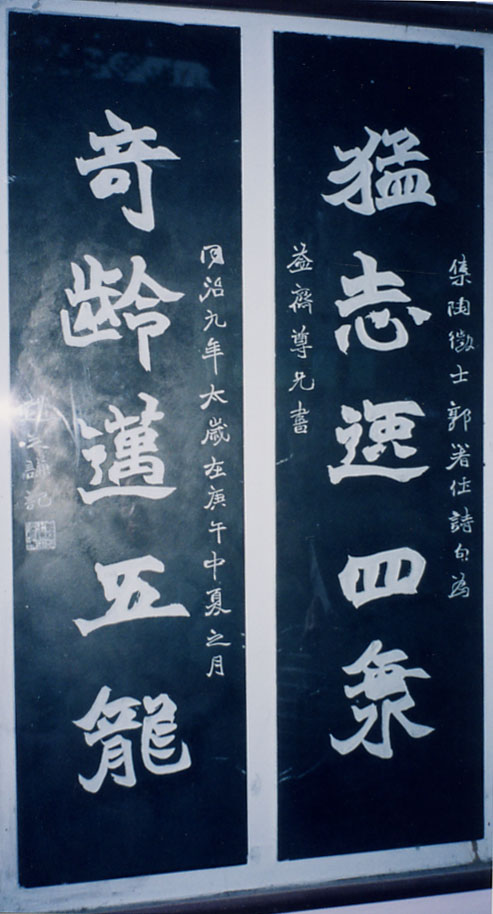 猛志逸四海
集陶徵士郭著作詩句為
益齋尊兄書
奇齡邁五龍
同治九年太歲在庚午中夏之月
趙之謙記